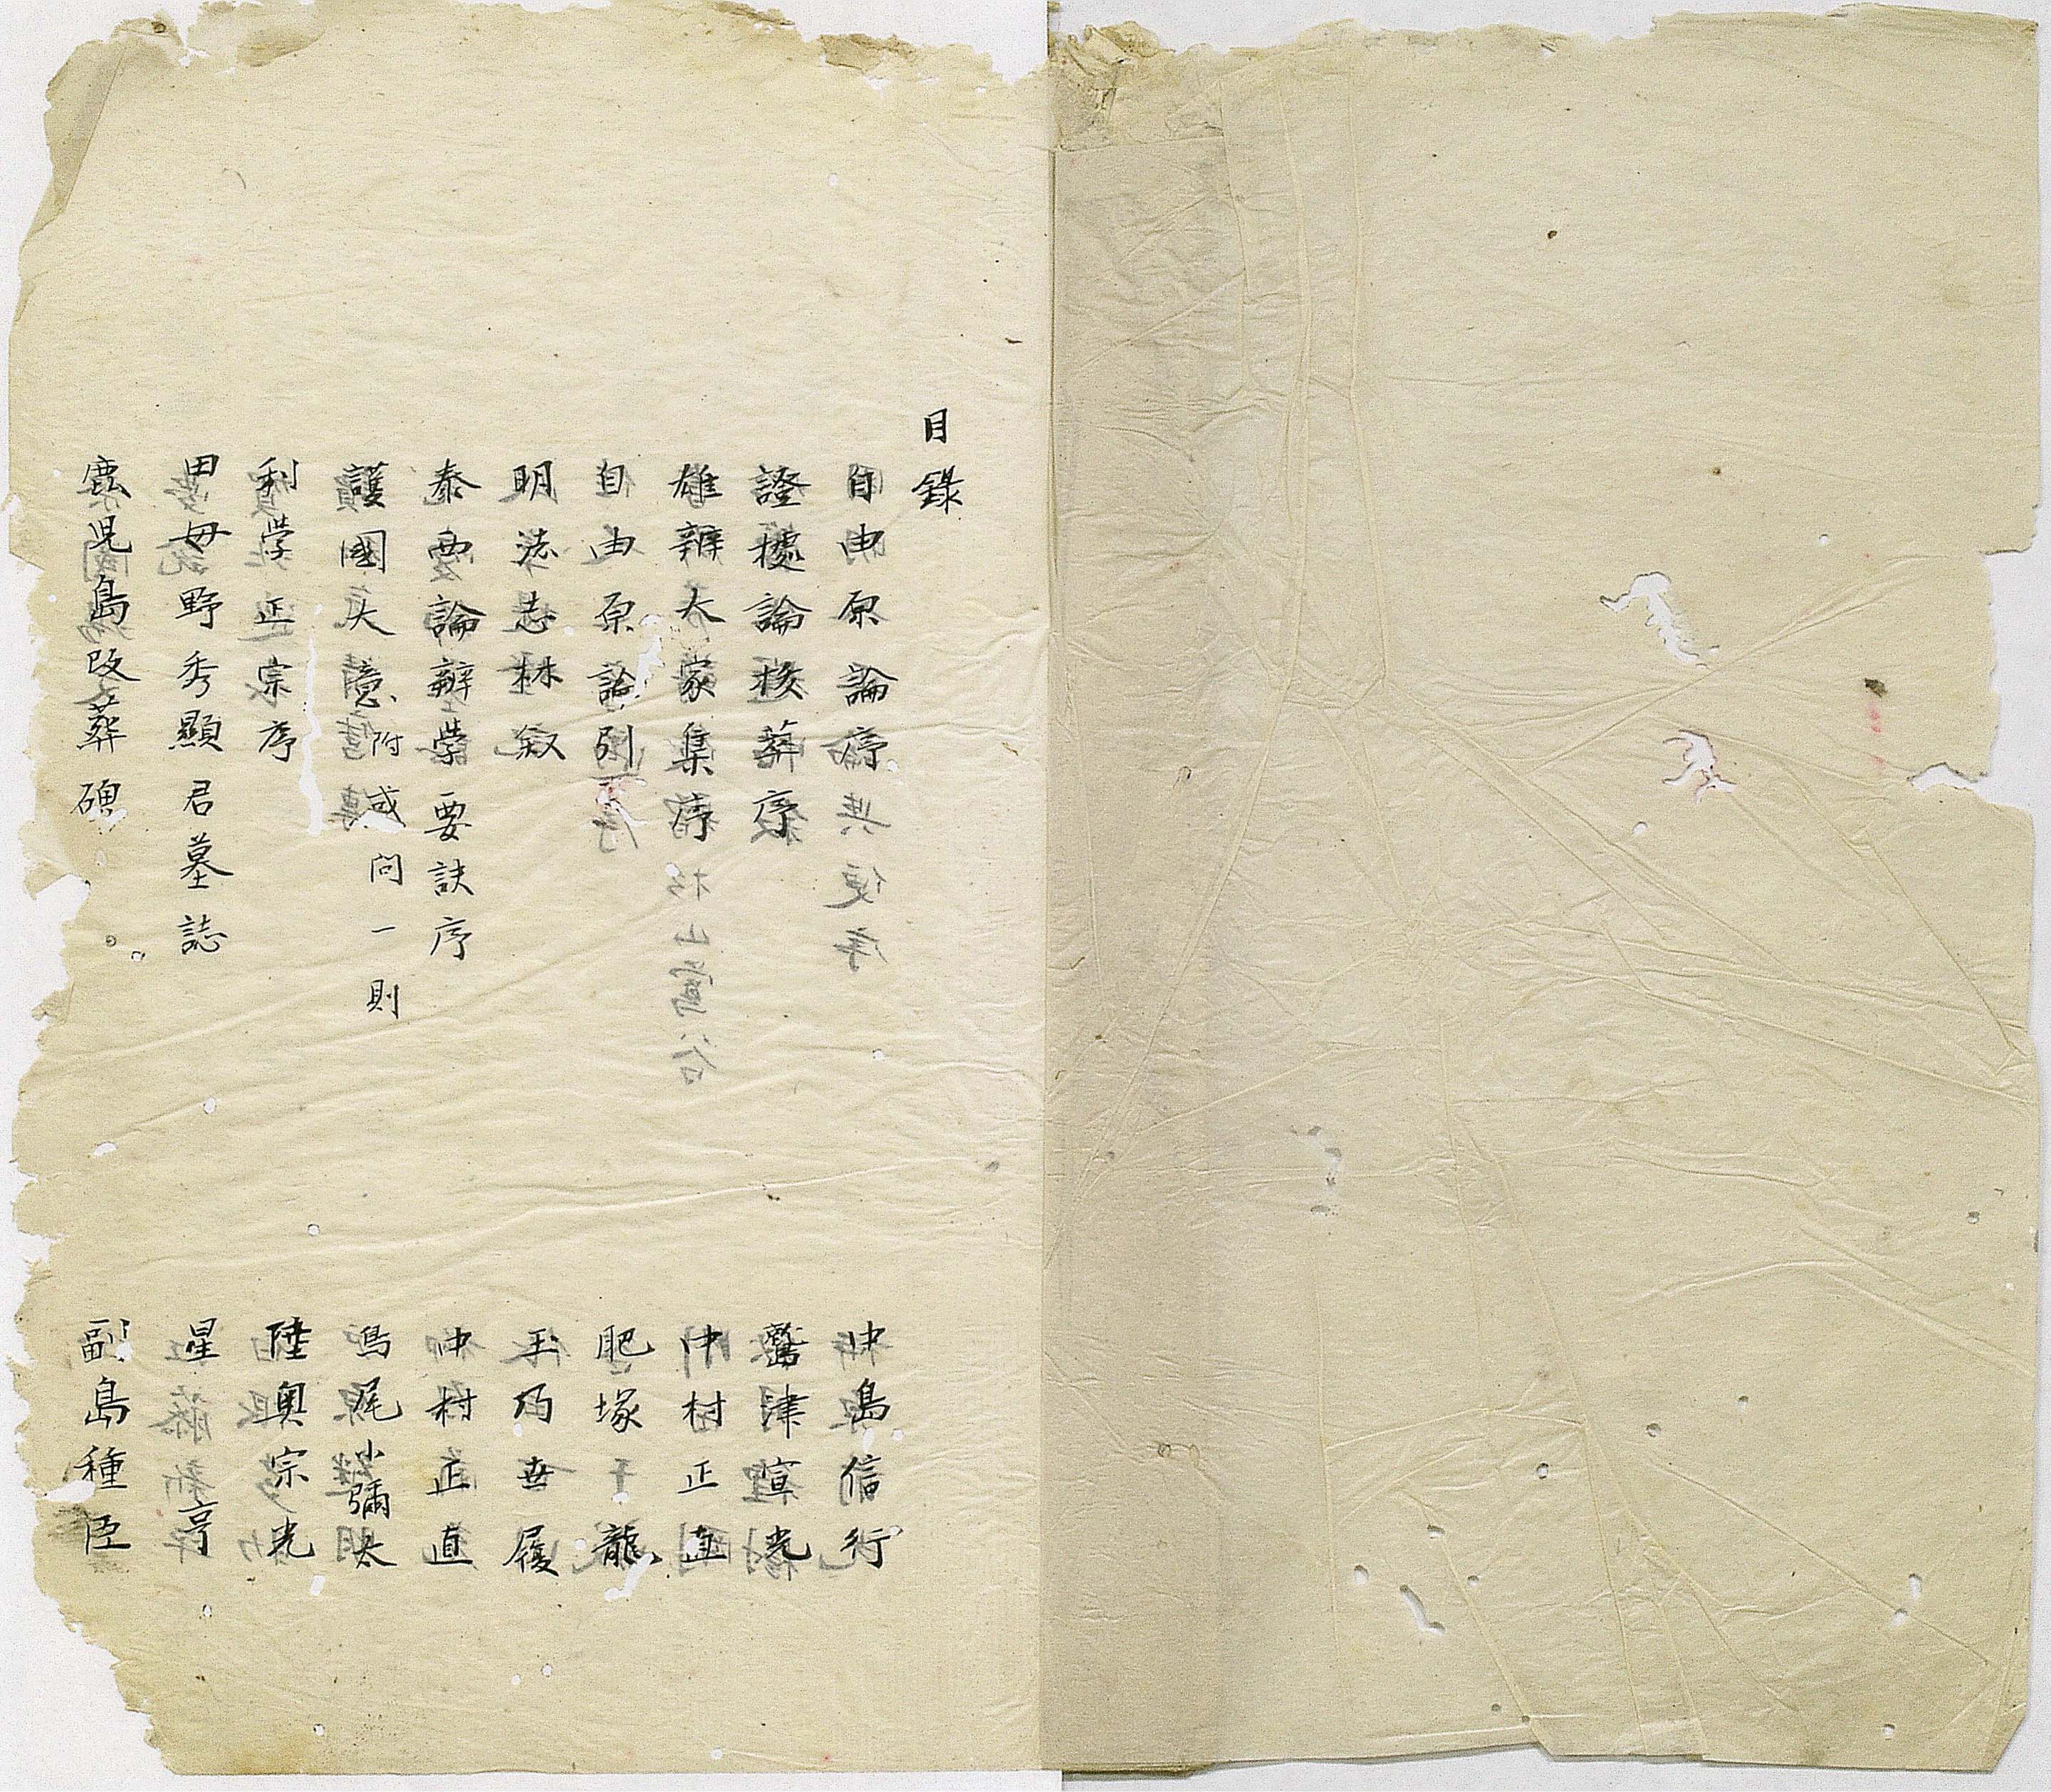 目錄
自由原論序 中島信行
證據論挍葬序 鷲津宣光
雄辨大家集序 中村正直
自由原論引 肥塚龍
明法志林敘 玉乃世履
泰西論辨學要訣序 中村正直
護國大意 附或問一則 鳥尾小彌太
利學正宗序 陸奥宗光
田母野秀顯君墓誌 星亨
鹿児島改葬碑 副島種臣